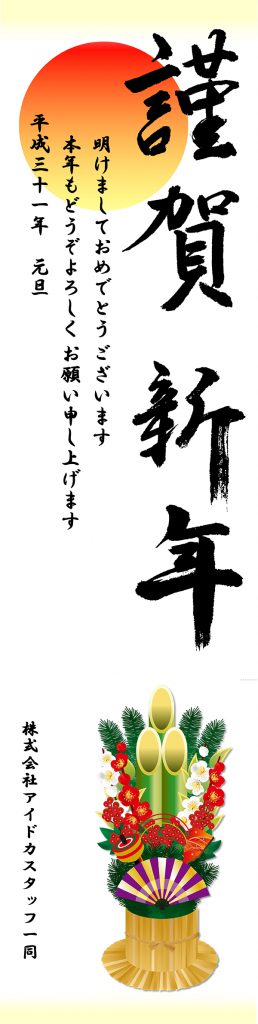 謹賀新年
明けましておめでとうございます
本年もどうぞよろしくお願い申し上げます
平成三十一年 元旦
株式会社アイドカスタッフ一同